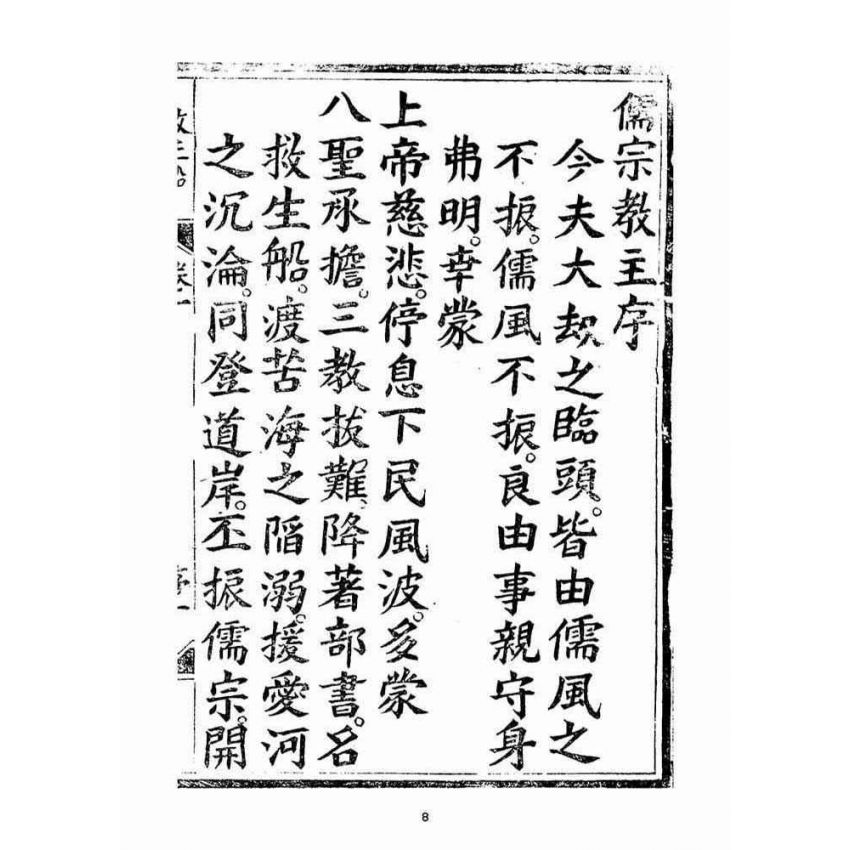 儒宗教主序
今夫大劫之臨頭。皆由儒風之
不振。儒風不振。良由事親守身
弗明。幸蒙
上帝慈悲。停息下民風波。多蒙
八聖承擔。三教拔難。降著部書。名
救生船。渡苦海之陷溺。援愛河
之沉淪。同登道岸。丕振儒宗。開
救生船
卷一
序一
8